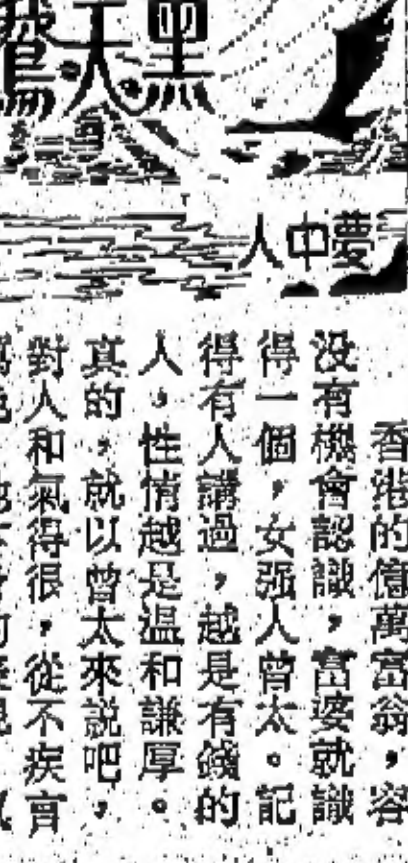 黑天鵞
夢中人
香港的億萬富翁，
没有機會認識，富婆就識
得一個，女强人曾太。記
得有人講過，越是有錢的
人，性情越是温和謙厚。
真的，就以曾太來説吧，
對人和氣得很，從不疾言